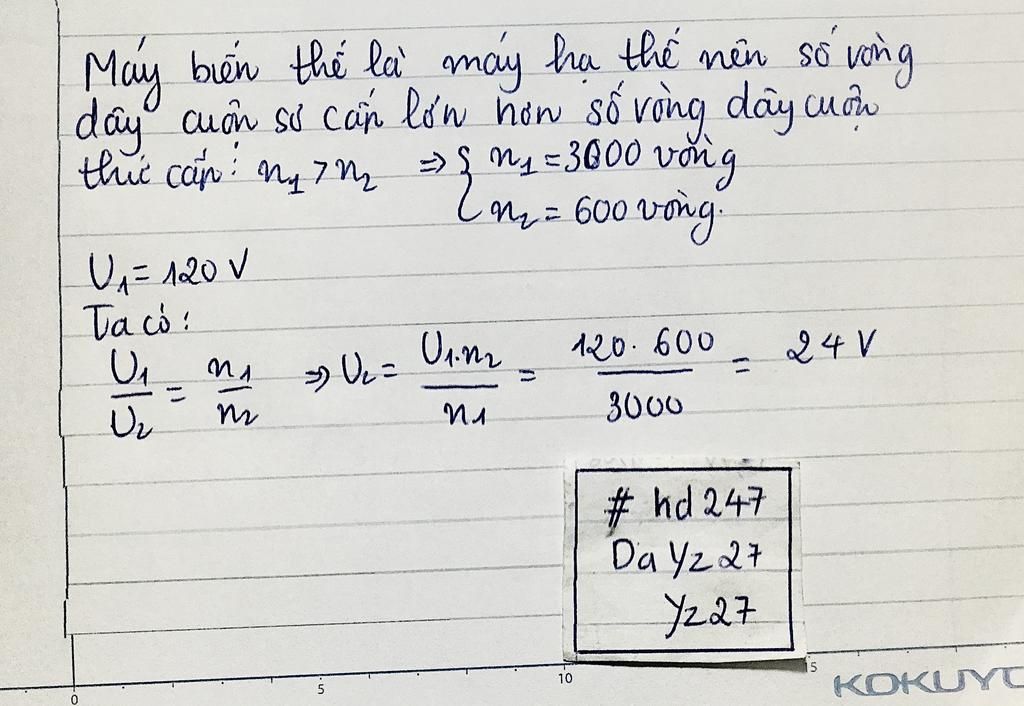 Máy biến thế là máy hạ thế nên số vòng
dây cuộn sơ cấp lớn hơn số vòng dây cuộn
thứ cấp: n₁ > n₂ ⇒ { n₁ = 3000 vòng
n₂ = 600 vòng.
U₁ = 120 V
Ta có:
U₁/U₂ = n₁/n₂ ⇒ U₂ = U₁.n₂/n₁ = 120.600/3000 = 24 V
# hd247
Da Yz27
Yz27
0 5 10 15
KOKUYO